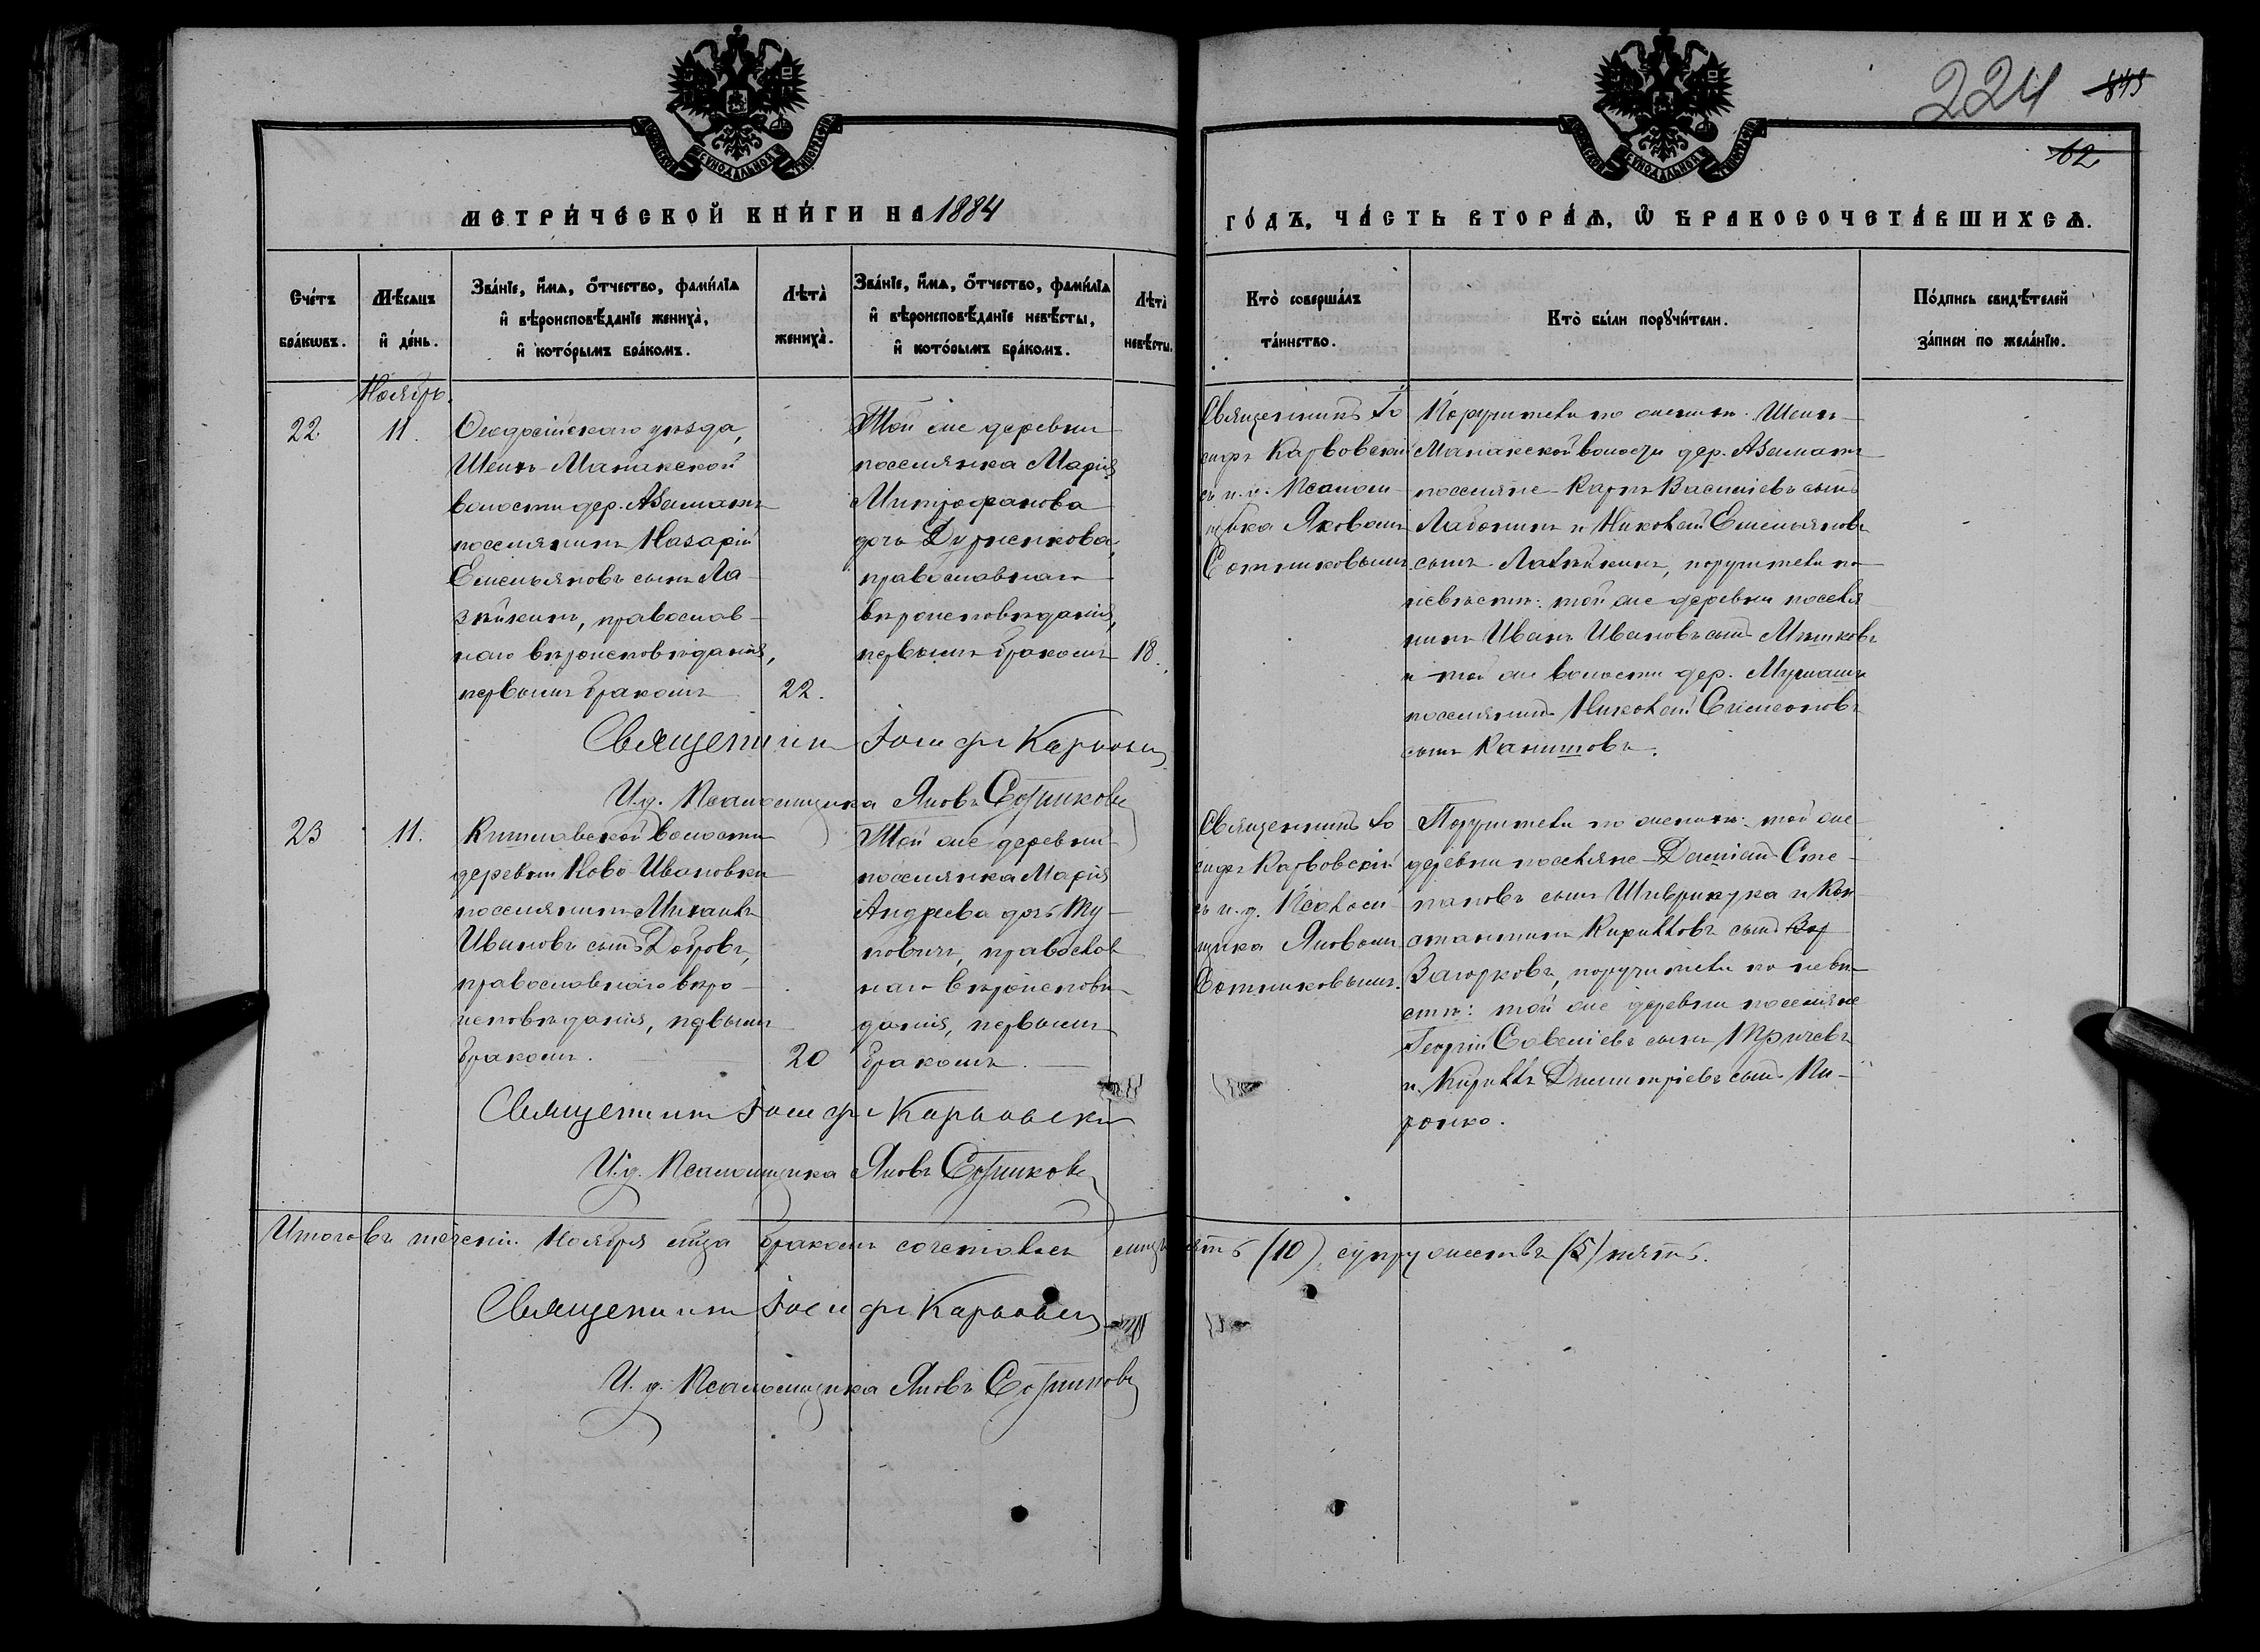 224 849
12
МЕТРИ́ЧЕСКОЙ КНИ́ГИ НА 1884
ГО́ДЪ, ЧА́СТЬ ВТОРА́Ѧ, Ѿ БРАКОСОЧЕТА́ВШИХСѦ.
Сче́тъ бра́кѡвъ.
Мѣ́сяцъ и҆ де́нь.
Зва́нїе, и҆́мѧ, ѻ҆́тчество, фами́лїѧ
и҆ вѣроисповѣ́данїе жениха̀,
и҆ кото́рымъ бра́комъ.
Лѣта̀ жениха̀.
Зва́нїе, и҆́мѧ, ѻ҆́тчество, фами́лїѧ
и҆ вѣроисповѣ́данїе невѣ́сты,
и҆ кото́рымъ бра́комъ.
Лѣта̀ невѣ́сты.
Кто̀ соверша́лъ
та́инство.
Кто̀ бы́ли порꙋчи́тели.
По́дпись свидѣ́телей
за́писи по жела́нїю.
Ноябрь.
22.
11.
Ѳеодосійскаго уѣзда,
Шейхъ-Манакской
волости дер. Азаматъ
поселянинъ Назарій
Емельяновъ сынъ Ла-
, православ-
наго вѣроисповѣданія,
первымъ бракомъ
22.
Той же деревни
поселянка Марія
Митрофанова
дочь Дурненкова,
православнаго
вѣроисповѣданія,
первымъ бракомъ
18.
Священникъ Іо
сифъ Карвовскій
съ и. д. Псалом-
щика Яковомъ
Сотниковымъ
Поручители по женихѣ: Шейхъ-
Манакской волости дер. Азаматъ
поселяне Карпъ Васильевъ сынъ
и Николай Емельяновъ
сынъ, поручители по
невѣстѣ: той же деревни поселя
нинъ Иванъ Ивановъ сынъ Мѣшковъ
и той же волости дер.
поселянинъ Николай Симеоновъ
сынъ Каништовъ.
Священникъ Іосифъ Карвовскій
И. д. Псаломщика Яковъ Сотниковъ
23
11.
Кишлавской волости
деревни Ново-Ивановки
поселянинъ Михаилъ
Ивановъ сынъ Добровъ,
православнаго вѣро-
исповѣданія, первымъ
бракомъ.
20
Той же деревни
поселянка Марія
Андреева дочь
православ
наго вѣроисповѣ-
данія, первымъ
бракомъ.
Священникъ Іо
сифъ Карвовскій
съ и. д. Псалом-
щика Яковомъ
Сотниковымъ.
Поручители по женихѣ: той же
деревни поселяне Даміанъ Сте-
пановъ сынъ и Кон
стантинъ Кирилловъ сынъ
Загорковъ, поручители по невѣ-
стѣ: той же деревни поселяне
Георгій Савеліевъ сынъ
и Кириллъ Димитріевъ сынъ Ми-
ронко.
Священникъ Іосифъ Карвовскій
И. д. Псаломщика Яковъ Сотниковъ
Итого въ теченіи Ноября мѣсяца бракомъ сочетавшихся лицъ десять (10), супружествъ (5) пять.
Священникъ Іосифъ Карвовскій
И. д. Псаломщика Яковъ Сотниковъ